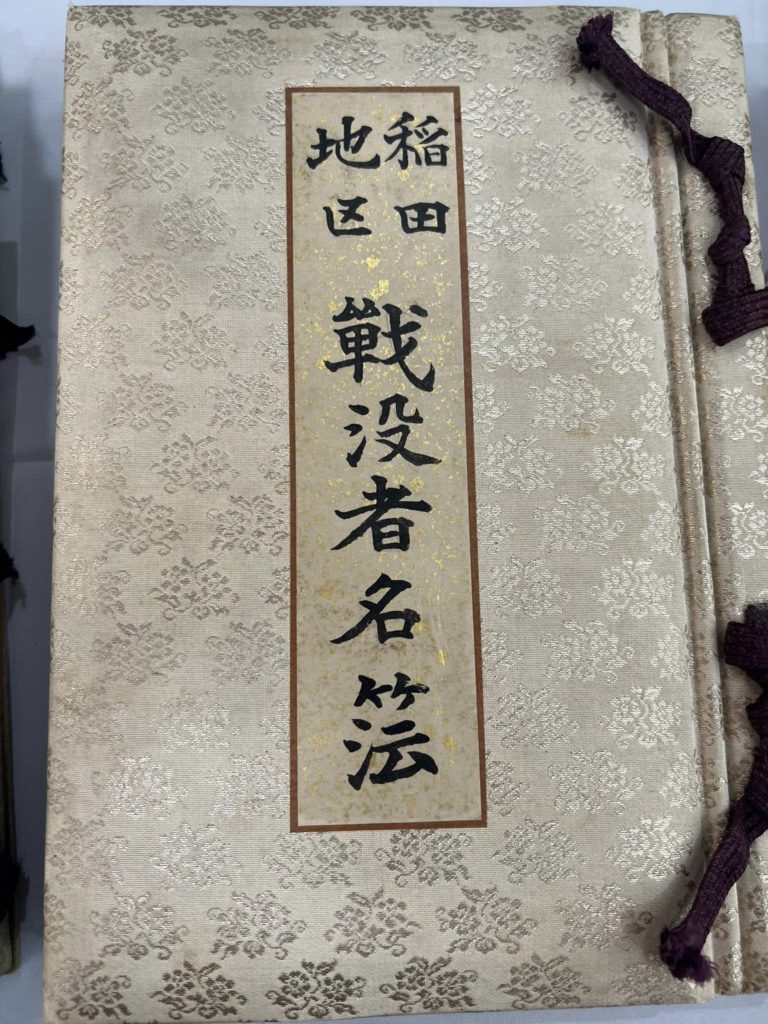 稲田
地区
戦没者名簿